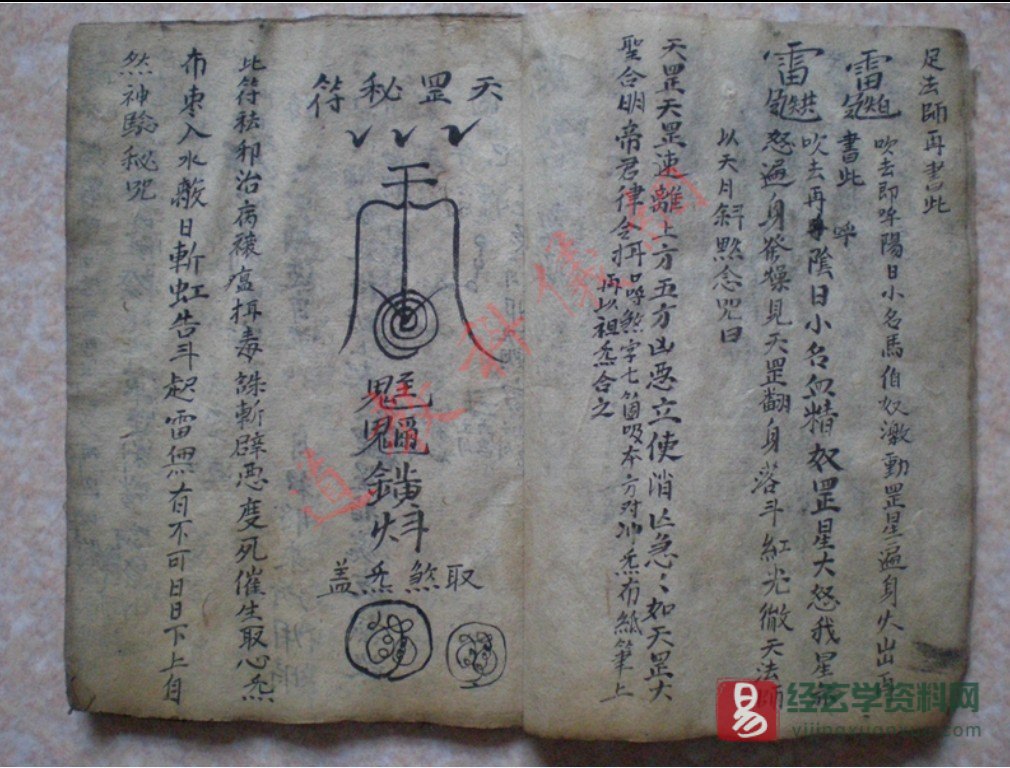 足法師再書此
雷 吹去即呼陽日小名馬伯奴激動罡星遍身火出再
書此 呼
雷 吹去再 陰日小名血精奴罡星大怒我星
怒遍身發燥見天罡翻身落斗紅光徹天法師
以天月斜點念咒曰
天罡天罡速離上方五方凶惡立使消亡急〻如天罡大
聖合明帝君律令 再口呼煞字七箇吸本方对冲炁布紙筆上
再以祖炁合之
天罡秘符
取煞炁盖
此符祛邪治病禳瘟 毒誅斬辟惡度死催生取心炁
布棗入水 日斬虹告斗起雷 有不可日日下上自
然神驗秘咒
道教科儀網
易
经艺学资料网